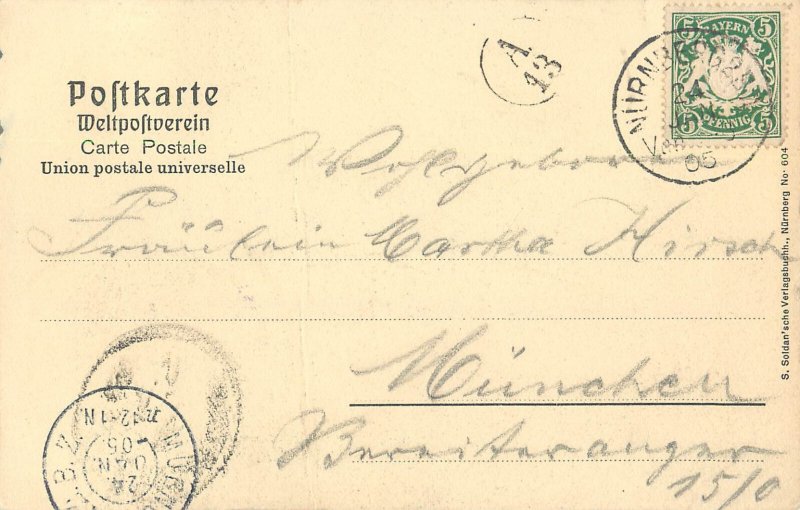 Postkarte
Weltpostverein
Carte Postale
Union postale universelle
A
13
BAYERN
5 5
5 PFENNIG 5
NÜRNBERG
24
05
Wohlgeboren
Fräulein Martha Hirsch
München
Bereiteranger
15/0
NÜRNB
24
JAN
05
12-1N
S. Soldan'sche Verlagsbuchh., Nürnberg No· 604